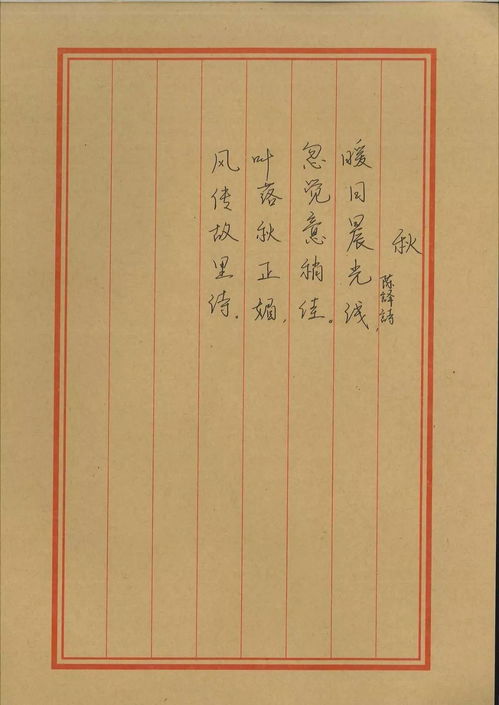 秋
陈译诗
暖日晨光线，
忽觉意稍佳。
叶落秋正媚，
风传故里待。